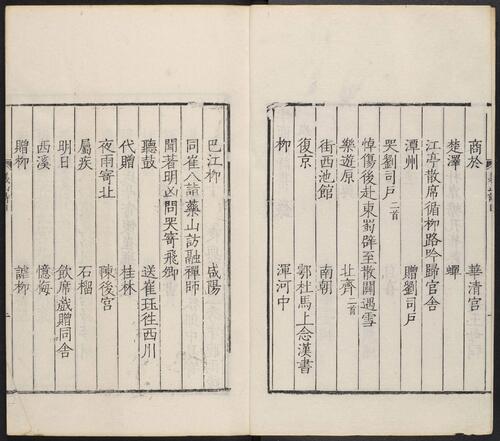 商於 華清宮
楚澤 蟬
江亭散席循柳路吟歸官舍
潭州 贈劉司戶
哭劉司戶二首
悼傷後赴東蜀辟至散關遇雪
樂遊原 北齊二首
街西池館 南朝
復京 鄠杜馬上念漢書
柳 渾河中
巴江柳 咸陽
同崔八詣藥山訪融禪師
聞著明凶問哭寄飛卿
聽鼓 送崔珏往西川
代贈 桂林
夜雨寄北 陳後宮
屬疾 石榴
明日 飲席戲贈同舍
西溪 憶梅
贈柳 謔柳